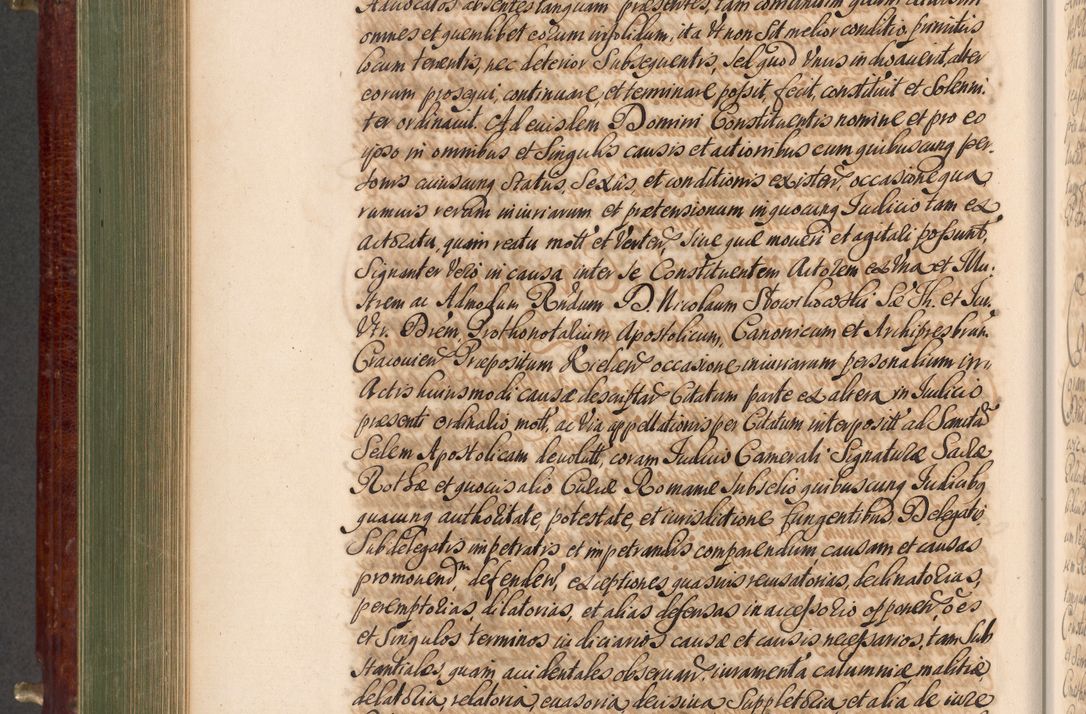 Advocatos absentes tanquam praesentes, tam coniunctim quam divisim
omnes et quemlibet eorum insolidum, ita Vt non sit melior conditio primitus
locum tenentis, nec deterior Subsequentis, sed quod Vnus inchoaverit, alter
eorum prosequi, continuare, et terminare possit, fecit, constituit et Solenni,
ter ordinavit. Ad eiusdem Domini Constituentis nomine et pro eo
ipso in omnibus et Singulis causis et actionibus cum quibuscunq per,
sonis cuiuscunq Status, Sexûs et conditionis existen, occasione qua
rumvis rerum iniuriarum et praetensionum in quocunq Iudicio tam ex
Actoratu, quam reatu mott et Verten Sive quae moveri et agitari possunt,
Signanter Vero in causa inter se Constituentem Actorem ex Vna et Illu,
strem ac Admodum Rndum D. Nicolaum Słowikowski Sae Th. et Iur.
Vtr. Drem, Prothonotarium Apostolicum, Canonicum et Archipresbrum
Cracovien Praepositum Kielcen occasione iniuriarum personalium in
Actis huiusmodi causae descriptar Citatum parte ex altera in Iudicio
praesenti ordinario mott, ac Via appellationis per Citatum interposit ad Sanctã
Sedem Apostolicam devolutt, coram Iudicio Camerali Signaturae Sacrae
Rothae et quovis alio Curiae Romanae Subselio quibuscunq Iudicibq
quacunq authoritate, potestate, et iurisditione fungentibus Delegatis
Subdelegatis impetratis et impetrandis comparendum, causam et causas
promovend, defenden, exceptiones quasvis recusatorias, declinatorias,
peremptorias, dilatorias, et alias defensas in accessorio opponen, oes
et Singulos terminos iudiciarios causae et causis necessarios, tam Sub
stantiales, quam accidentales observan, iuramenta calumniae malitiae
delatoria, relatoria, evasoria, decisiva Suppletoria et alia de iure